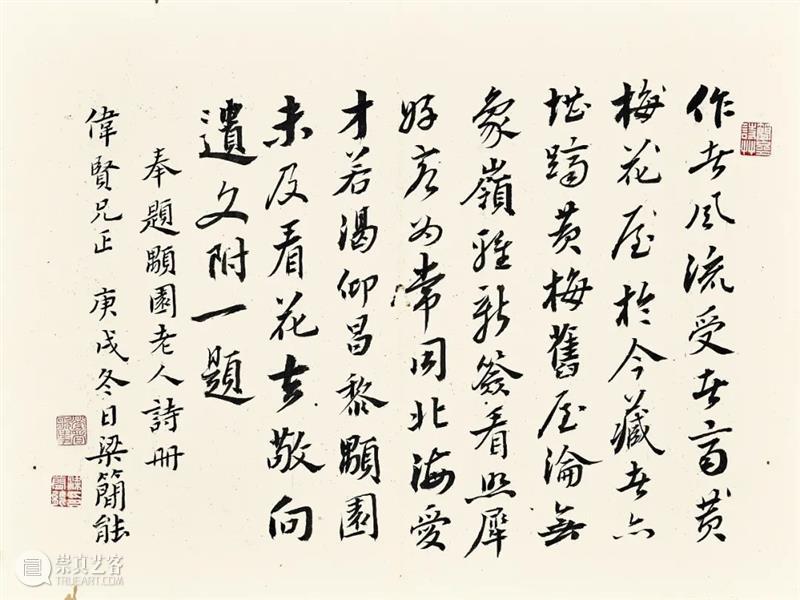 作者風流受者黄
梅花屋於今藏者亦
堪躋黄梅舊屋淪無
象嶺雅新簽看照犀
好客為常同北海愛
才若渴仰昌黎顒園
未及看花去敬向
遺文附一題
奉題顒園老人詩冊
偉賢兄正 庚戌冬日梁簡能
崇真艺客
TRUEART.COM